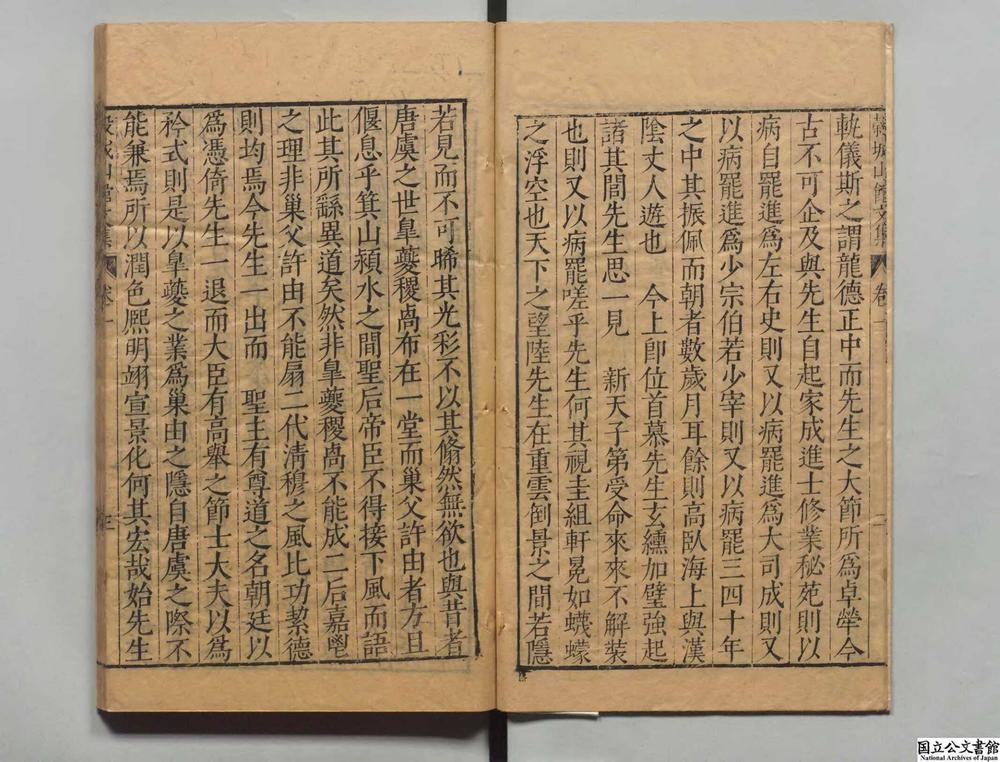 穀城山館文集 卷一 二
軌儀斯之謂龍德正中而先生之大節所爲卓犖今
古不可企及與先生自起家成進士修業秘苑則以
病自罷進爲左右史則又以病罷進爲大司成則又
以病罷進爲少宗伯若少宰則又以病罷三四十年
之中其振佩而朝者數歲月耳餘則高臥海上與漢
陰丈人遊也 今上卽位首慕先生玄纁加璧強起
諸其閭先生思一見 新天子第受命來來不解裝
也則又以病罷嗟乎先生何其視圭組軒冕如蠛蠓
之浮空也天下之望陸先生在重雲倒景之間若隱
若見而不可睎其光彩不以其翛然無欲也與昔者
唐虞之世臯夔稷卨布在一堂而巢父許由者方且
偃息乎箕山潁水之間聖后帝臣不得接下風而語
此其所繇異道矣然非臯夔稷卨不能成二后嘉鬯
之理非巢父許由不能扇二代清穆之風比功絜德
則均焉今先生一出而 聖主有尊道之名朝廷以
爲憑倚先生一退而大臣有高舉之節士大夫以爲
衿式則是以臯夔之業爲巢由之隱自唐虞之際不
能兼焉所以潤色熙明翊宣景化何其宏哉始先生
穀城山館文集 卷一 三
国立公文書館
National Archives of Japan